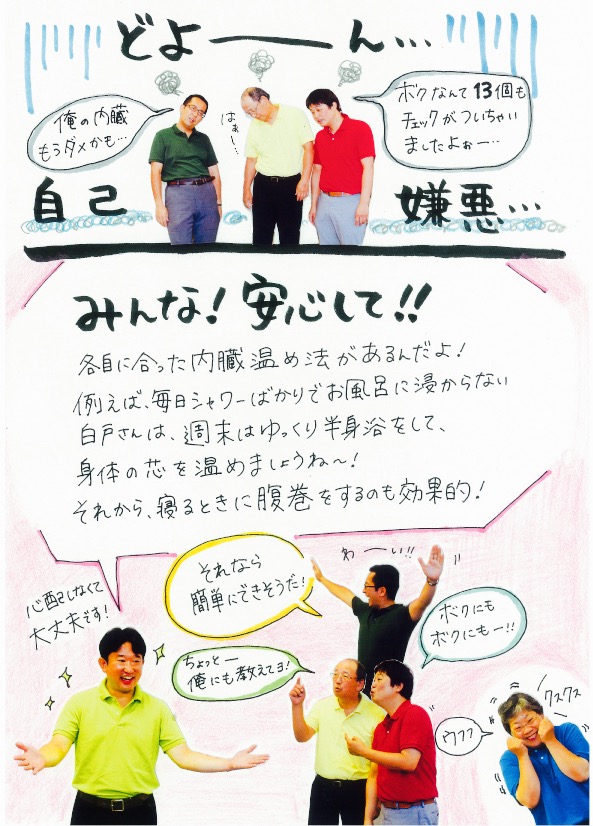 どよーーん…
俺の内臓
もうダメかも…
はぁ〜…
ボクなんて13個も
チェックがついちゃい
ましたよぉー…
自己 嫌悪…
みんな!安心して!!
各自に合った内臓温め法があるんだよ!
例えば、毎日シャワーばかりでお風呂に浸からない
白戸さんは、週末はゆっくり半身浴をして、
身体の芯を温めましょうね〜!
それから、寝るときに腹巻をするのも効果的!
心配しなくて
大丈夫です!
それなら
簡単にできそうだ!
わーい!!
ボクにも
ボクにもー!!
ちょっとー
俺にも教えてヨ!
クスクス
ウフフ